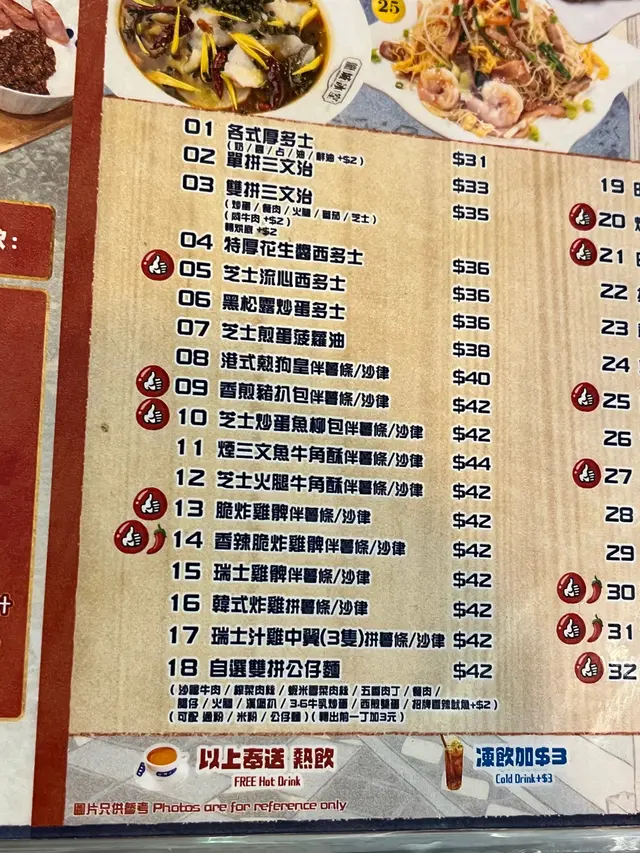 25
01 各式厚多士 $31
(奶/醬/占/油/鮮油+$2)
02 單拼三文治 $33
03 雙拼三文治 $35
(炒蛋/餐肉/火腿/蕃茄/芝士)
(鹹牛肉+$2)
轉烘底+$2
04 特厚花生醬西多士 $36
05 芝士流心西多士 $36
06 黑松露炒蛋多士 $36
07 芝士煎蛋菠蘿油 $38
08 港式熱狗皇伴薯條/沙律 $40
09 香煎豬扒包伴薯條/沙律 $42
10 芝士炒蛋魚柳包伴薯條/沙律 $42
11 煙三文魚牛角酥伴薯條/沙律 $44
12 芝士火腿牛角酥伴薯條/沙律 $42
13 脆炸雞髀伴薯條/沙律 $42
14 香辣脆炸雞髀伴薯條/沙律 $42
15 瑞士雞髀伴薯條/沙律 $42
16 韓式炸雞拼薯條/沙律 $42
17 瑞士汁雞中翼(3隻)拼薯條/沙律 $42
18 自選雙拼公仔麵 $42
(沙嗲牛肉/榨菜肉絲/蝦米雪菜肉絲/五香肉丁/餐肉/
腸仔/火腿/漢堡扒/3.6牛乳炒蛋/西煎雙蛋/招牌香辣魷魚+$2)
(可配 通粉/米粉/公仔麵)(轉出前一丁加3元)
以上奉送 熱飲
FREE Hot Drink
凍飲加$3
Cold Drink+$3
圖片只供參考 Photos are for reference only
19
20
21
22
23
24
25
26
27
28
29
30
31
32